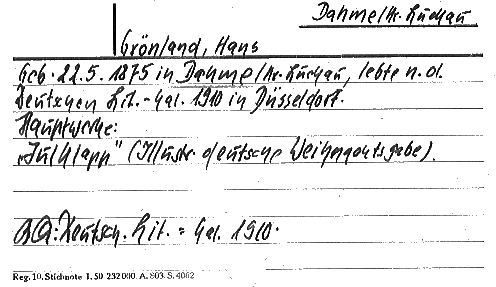 Dahme/Kr. Luckau
Grönland, Hans
Geb. 22.5.1875 in Dahme/Kr. Luckau, lebte n. d.
Deutschen Lit.-Kal. 1910 in Düsseldorf.
Hauptwerke:
„Julklapp“ (Illustr. deutsche Weihnachtsgabe).
BQ: Deutsch. Lit.=Kal. 1910.
Reg. 10. Stichnote 1. 50 232000. A. 803. S. 4062